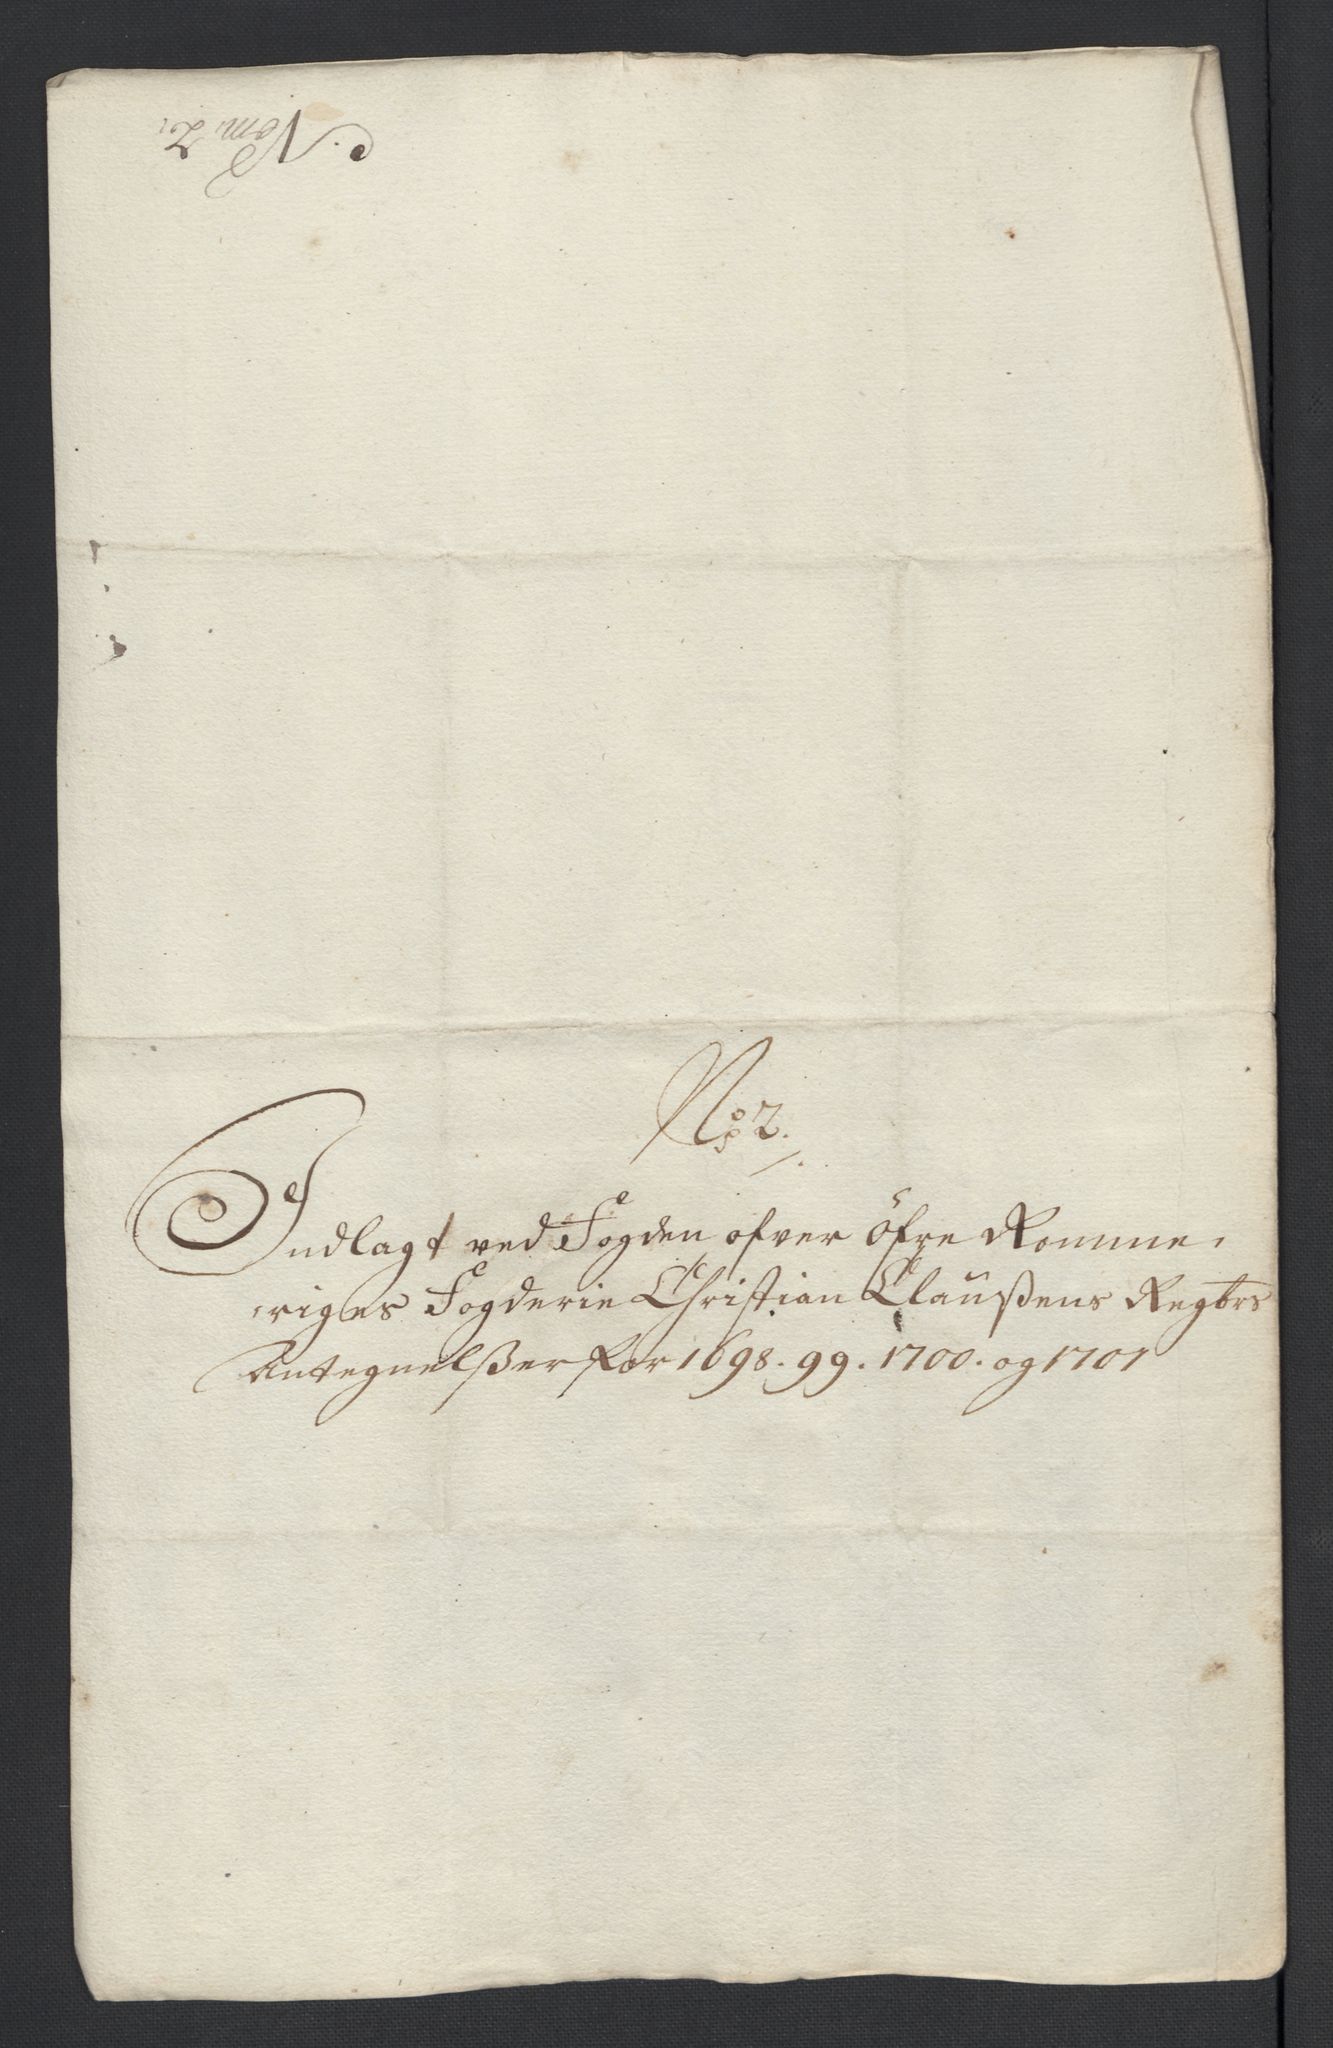 Nom: 2.
No 2.
Indlagt ved Fogden ofver Öfre Romme,
riges Fogderie Christian Claußens Regbrs
Antegnelßer for 1698. 99. 1700. og 1701